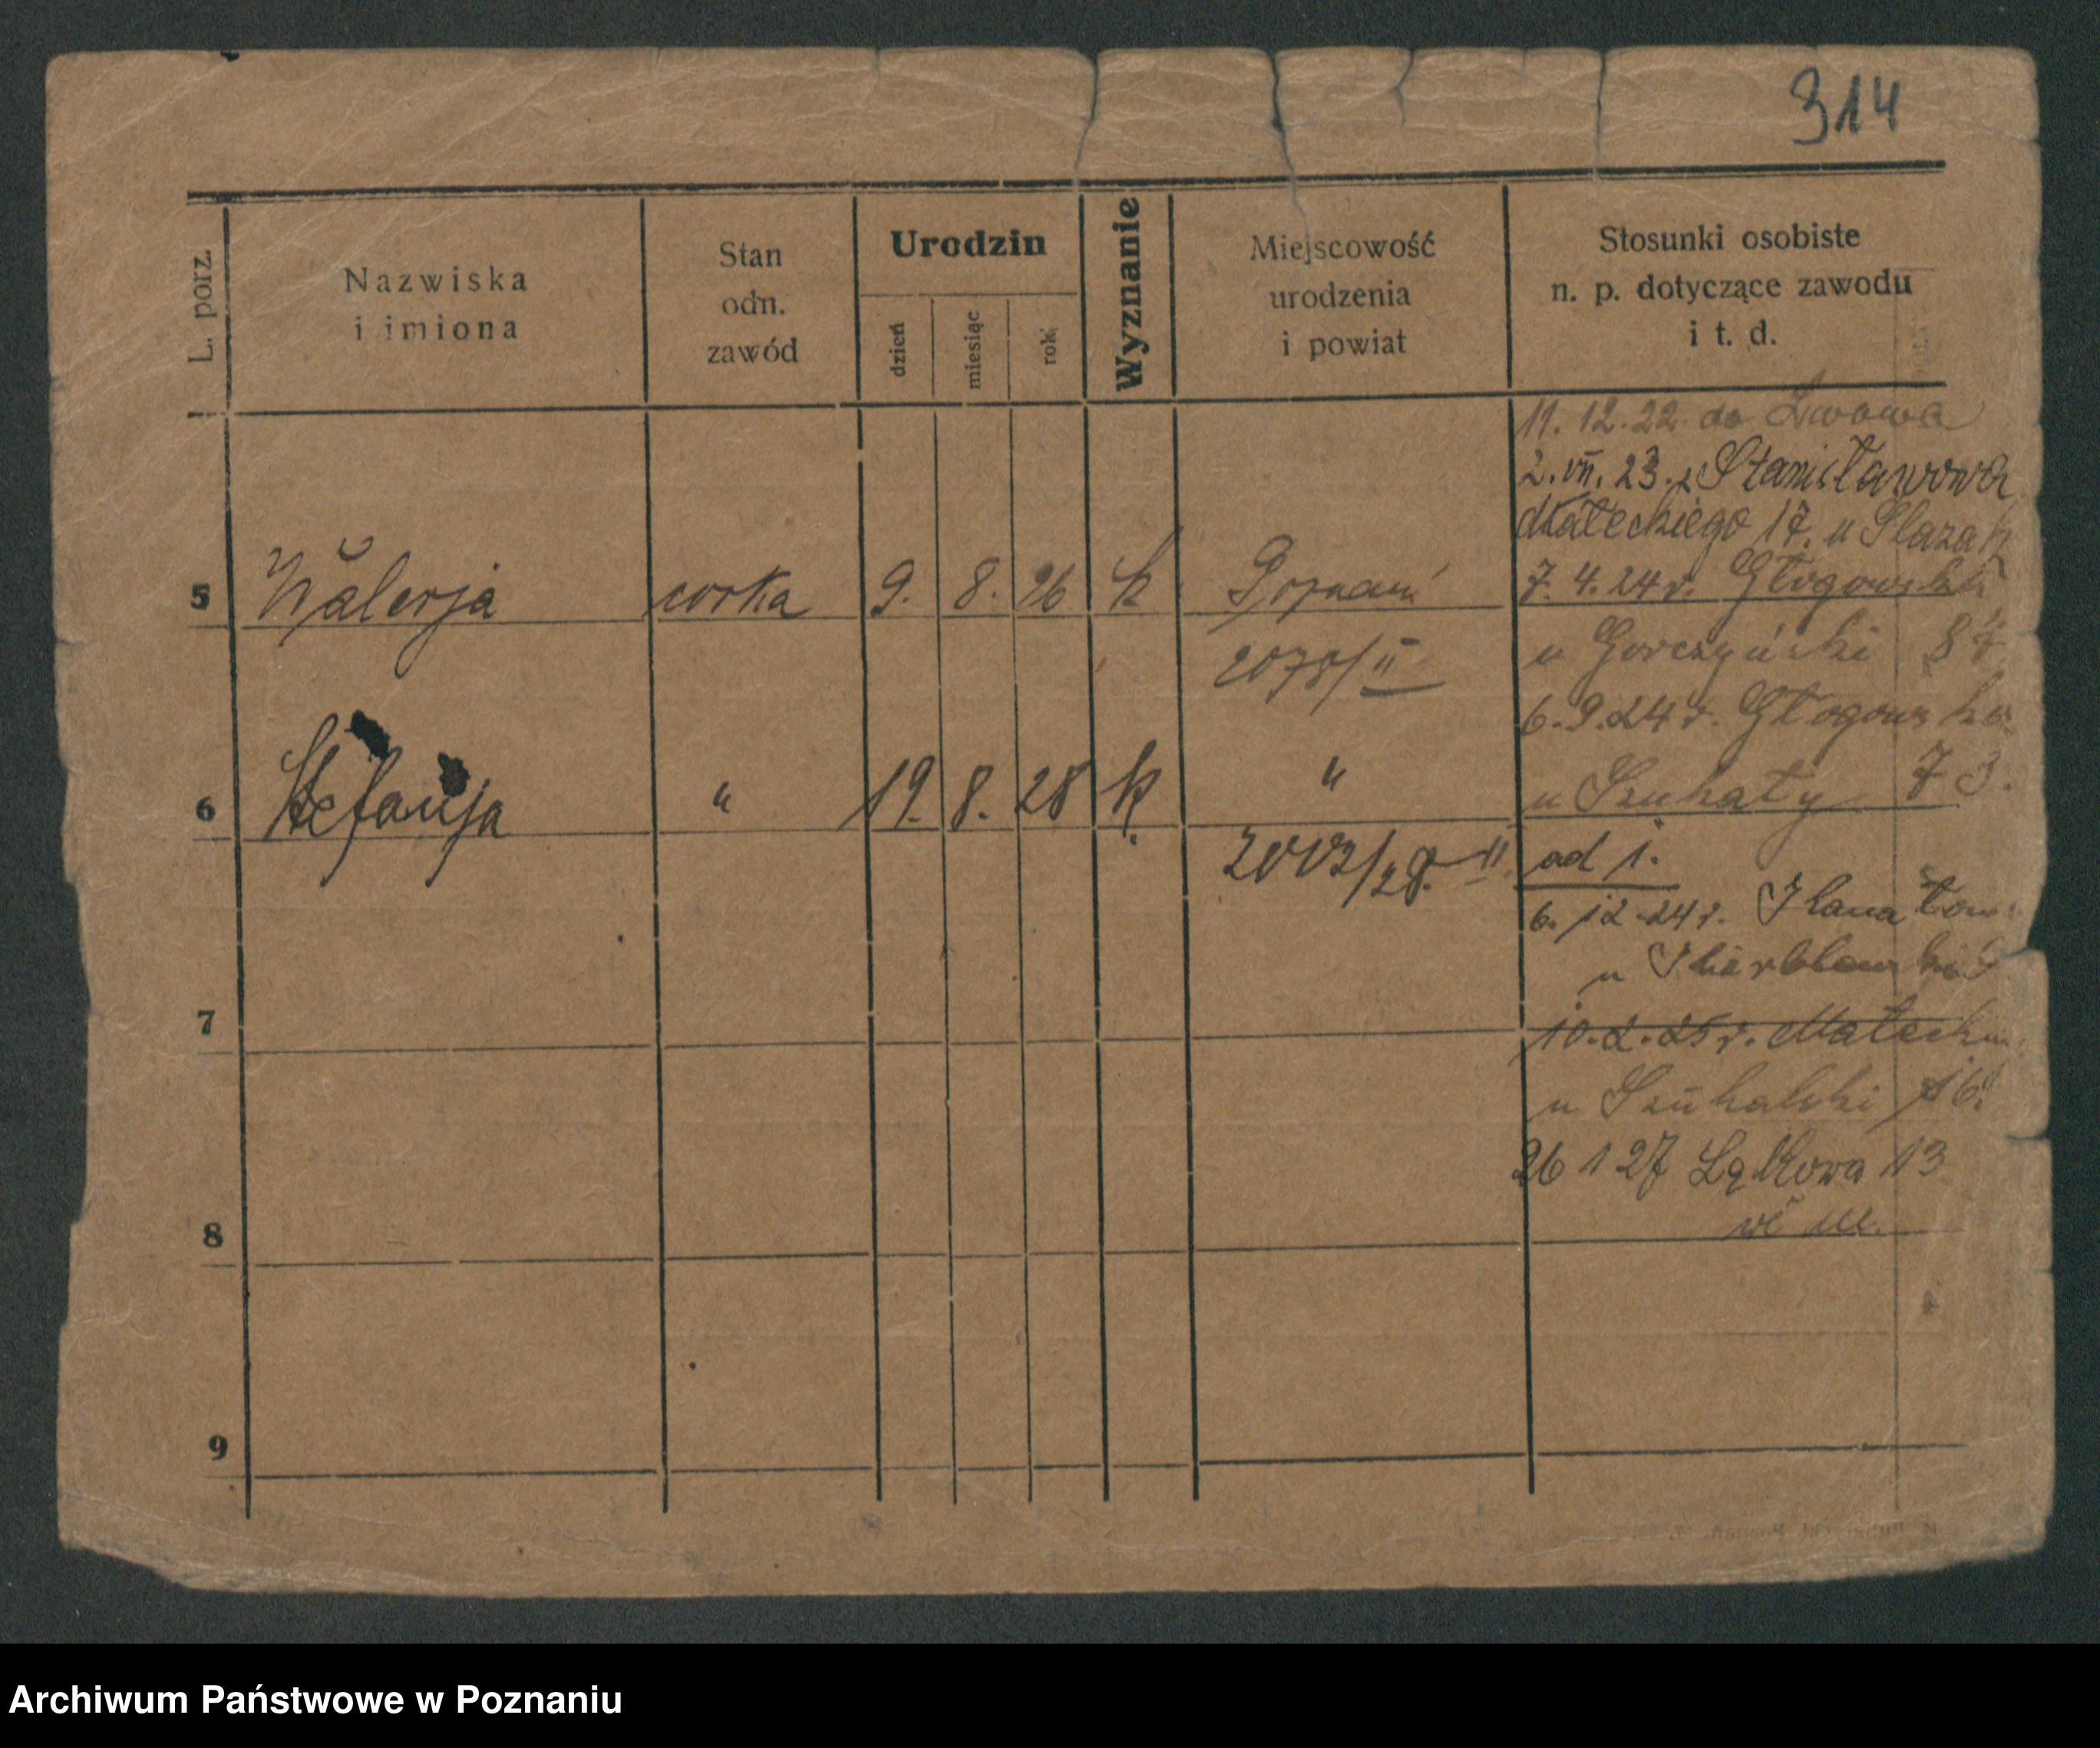 314
L. porz.
Nazwiska
i imiona
Stan
odn.
zawód
Urodzin
dzień
miesiąc
rok
Wyznanie
Miejscowość
urodzenia
i powiat
Stosunki osobiste
n. p. dotyczące zawodu
i t. d.
11. 12. 22 do Lwowa
2. VII. 23. z Stanisławowa
Małeckiego 17. u
5 Walerja córka 9. 8. 26 k Poznań
7. 4. 24 r. Głogowska
u Gorczyński 87
6. 9. 24 r. Głogowska
u 73.
6 Stefanja " 19. 8. 28 k. "
ad 1.
6. 12. 24 r.
u
7
10. 2. 25 r. Małeckiego
u 16.
26 1 27 Łąkowa 13
8
9
Archiwum Państwowe w Poznaniu